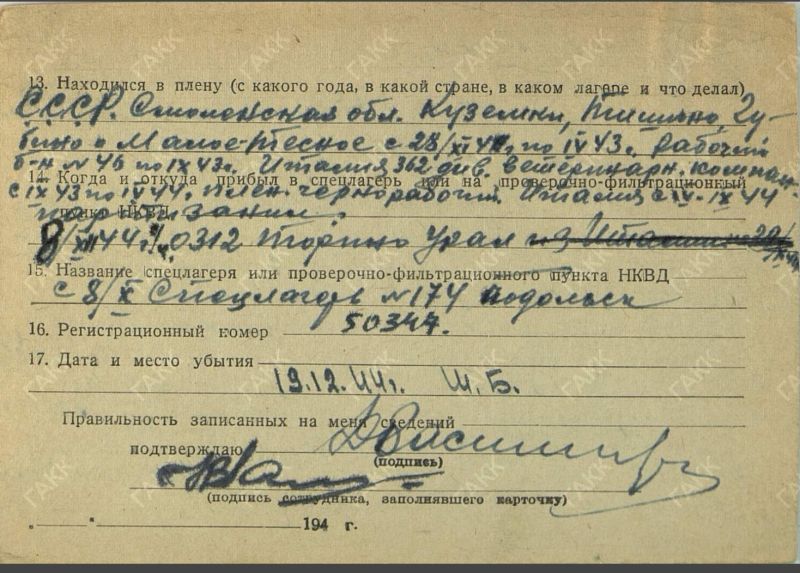 13. Находился в плену (с какого года, в какой стране, в каком лагере и что делал)
СССР. Смоленская обл. Куземки, Гу-
бино и Малое-Тесное с 28/XI 41г. по IV 43г. рабочий
б-н N 46 по IX 43г. Италия 362 див. ветеринарн. компан.
14. Когда и откуда прибыл в спецлагерь или на проверочно-фильтрационный
с IX 43 по IV 44. Плен. чернорабочий. Италия с IV-IX 44
пункт НКВД
партизании.
8/XII 44г. 0312 Торино Урал из Италии
15. Название спецлагеря или проверочно-фильтрационного пункта НКВД
с 8/X Спецлагерь N 174 Подольск
16. Регистрационный номер 50347.
17. Дата и место убытия
19.12.44г. Ш.Б.
Правильность записанных на меня сведений
подтверждаю
(подпись)
(подпись сотрудника, заполнявшего карточку)
194 г.
ГАКК